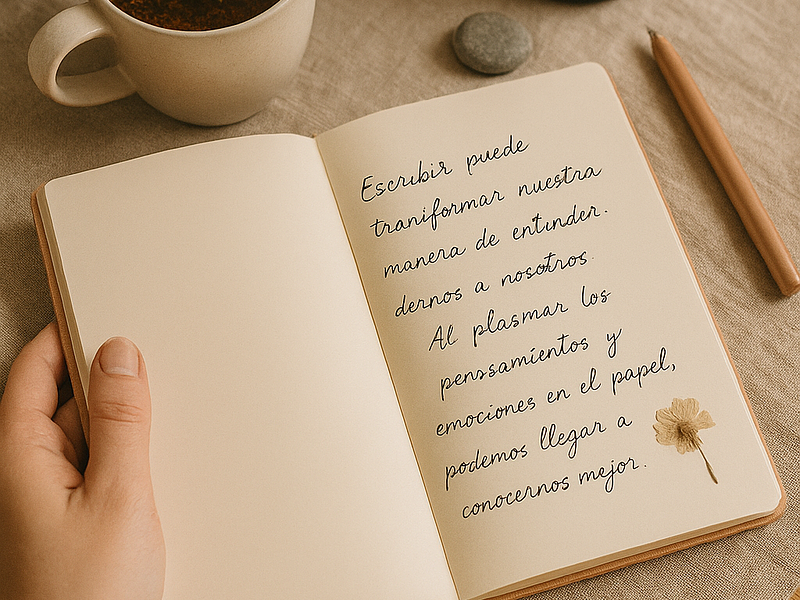 Escribir puede
traniformar nuestra
manera de entunder.
dernos a nosotros.
Al plasmar los
penssamientos y
emociones en el papel,
podemos llegar a
conocernos mejor.